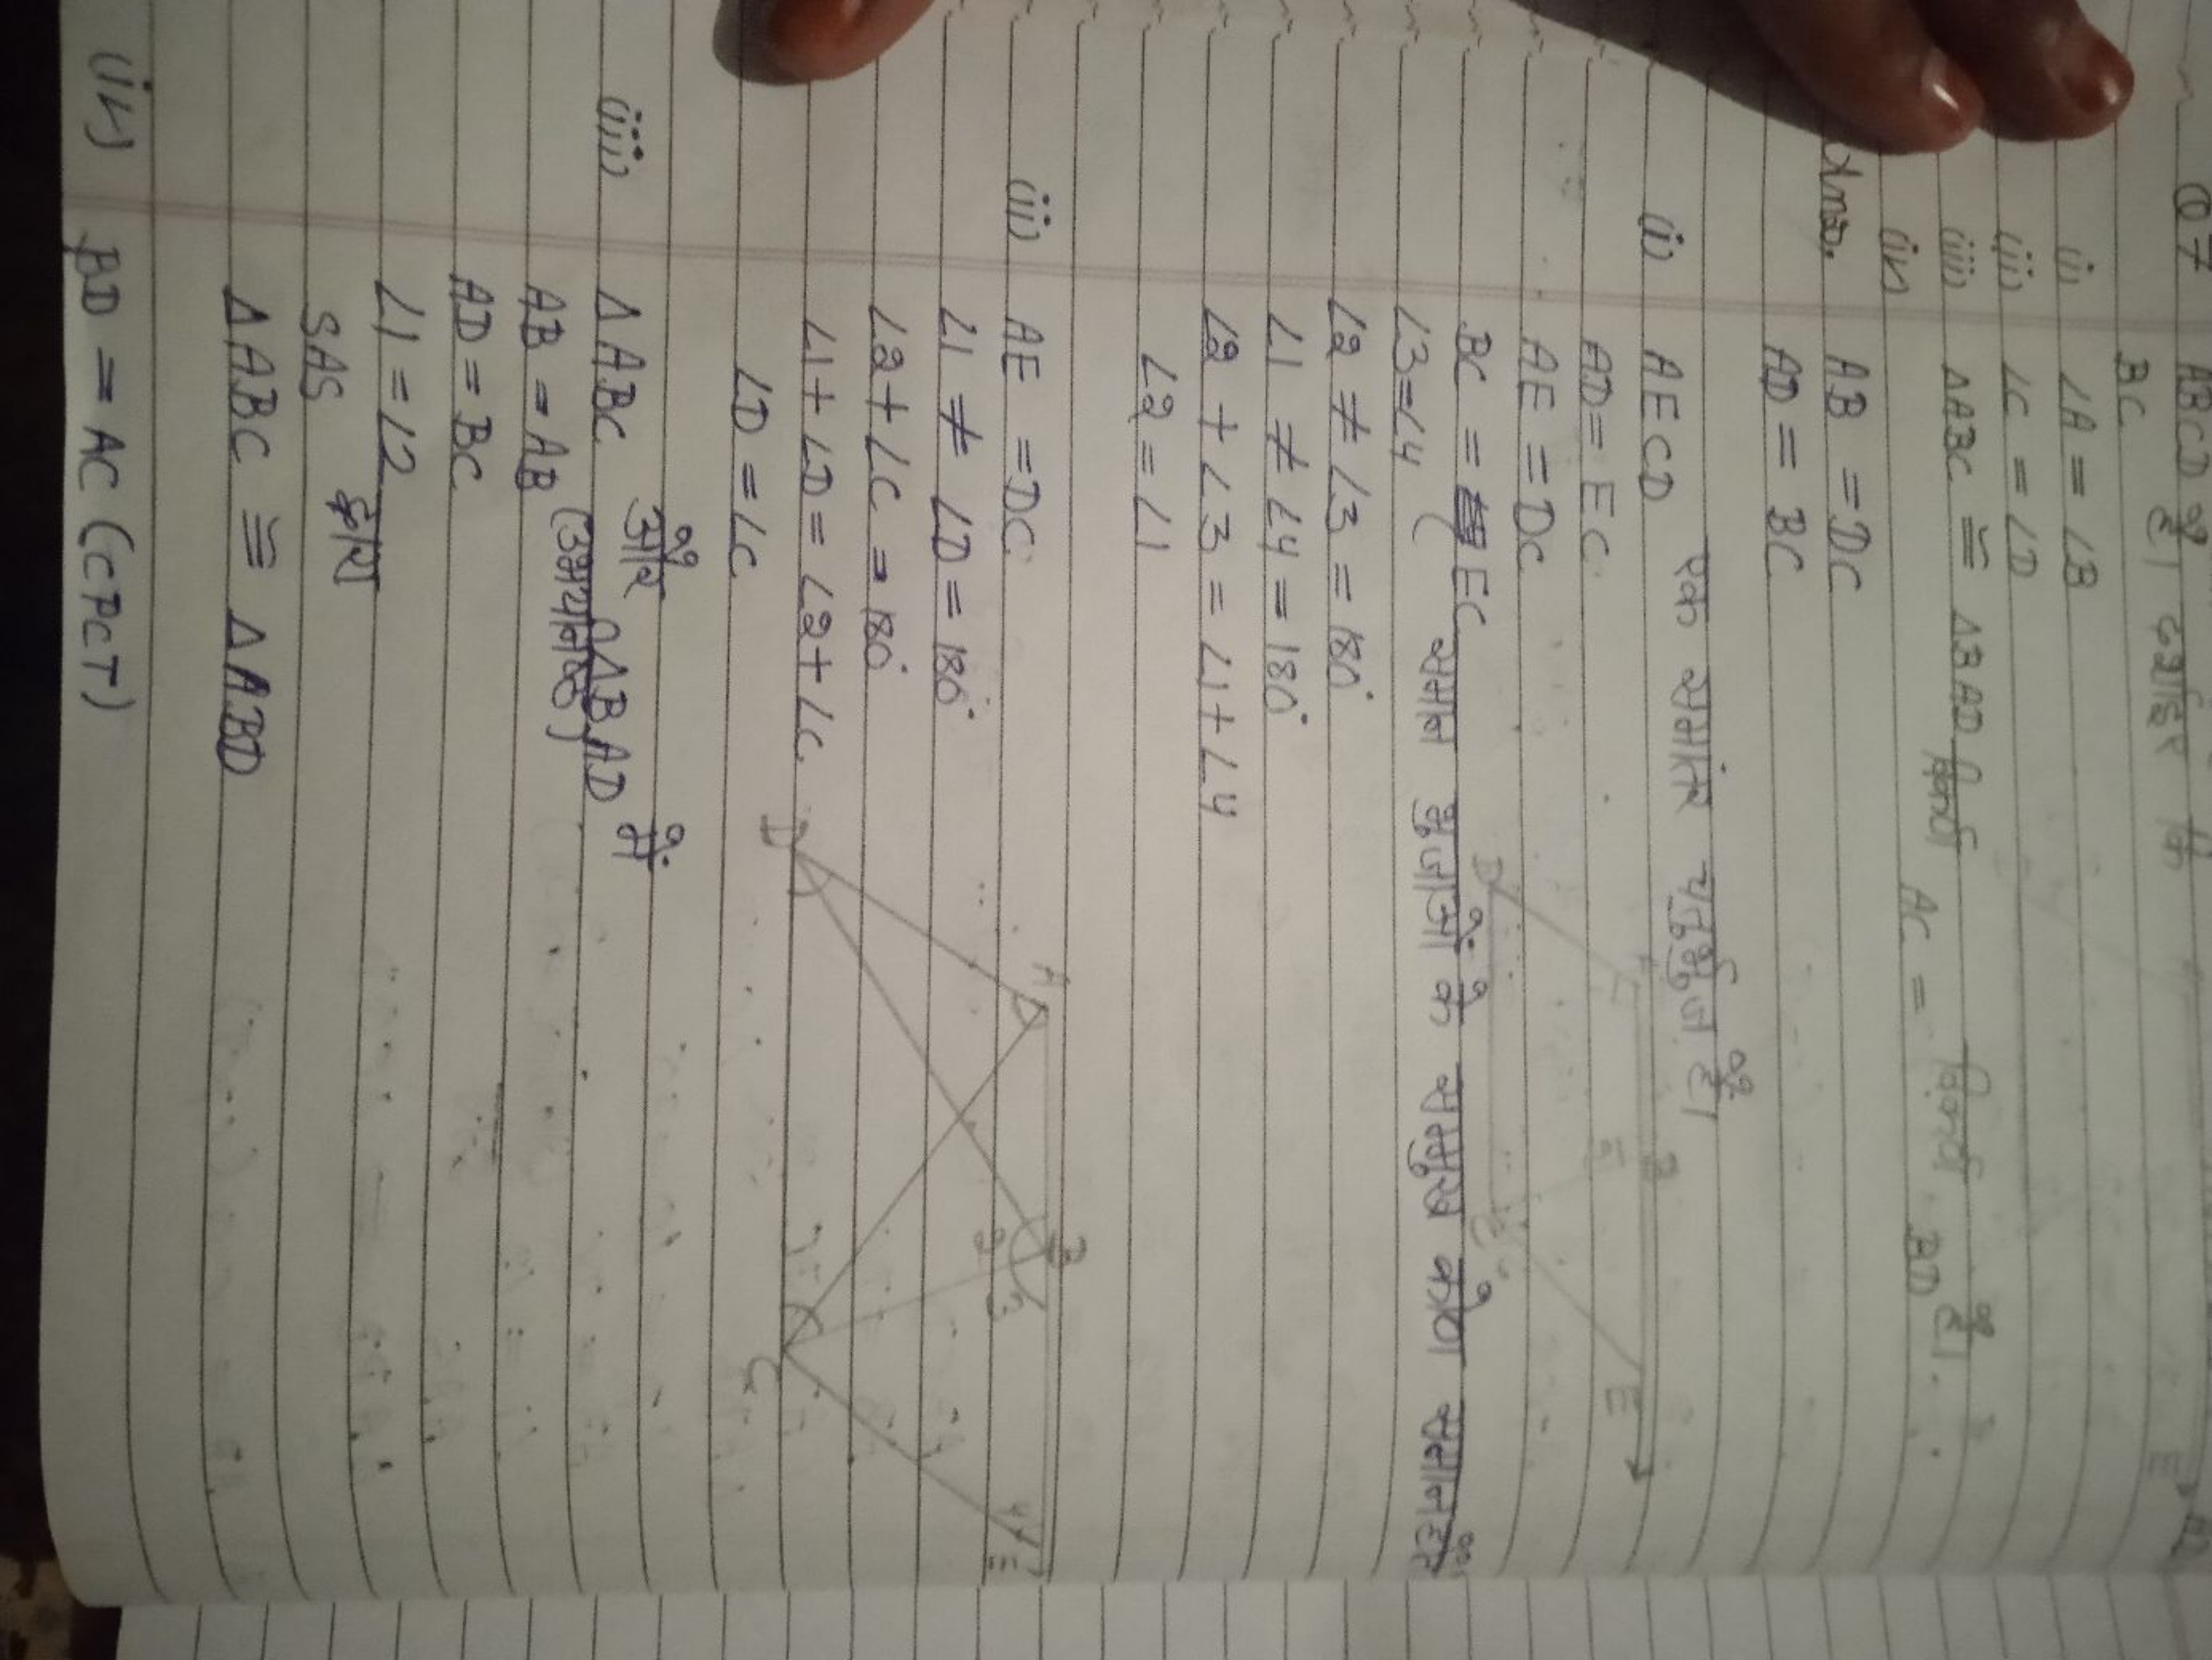 Q7 ABCD
BC है। दर्शाइए कि
(i) ∠A = ∠B
(ii) ∠C = ∠D
(iii) ΔABC ≅ ΔBAD
(iv) विकर्ण AC = विकर्ण BD है।
Ans. AB = DC
AD = BC
(i) AECD एक समांतर चतुर्भुज है।
AD = EC
AE = DC
BC = EC
∠3=∠4 ( समान भुजाओं के सम्मुख कोण समान है)
∠2 ≠ ∠3 = 180°
∠1 ≠ ∠4 = 180°
∠2 + ∠3 = ∠1+∠4
∠2 = ∠1
(ii) AE = DC
∠1 ≠ ∠D = 180°
∠2+∠C = 180°
∠1+∠D = ∠2+∠C
∠D = ∠C
A
B
2
3
4
E
D
C
(iii) ΔABC और ΔBAD में
AB = AB (उभयनिष्ठ)
AD = BC
∠1 = ∠2
SAS द्वारा
ΔABC ≅ ΔABD
(iv) BD = AC (CPCT)